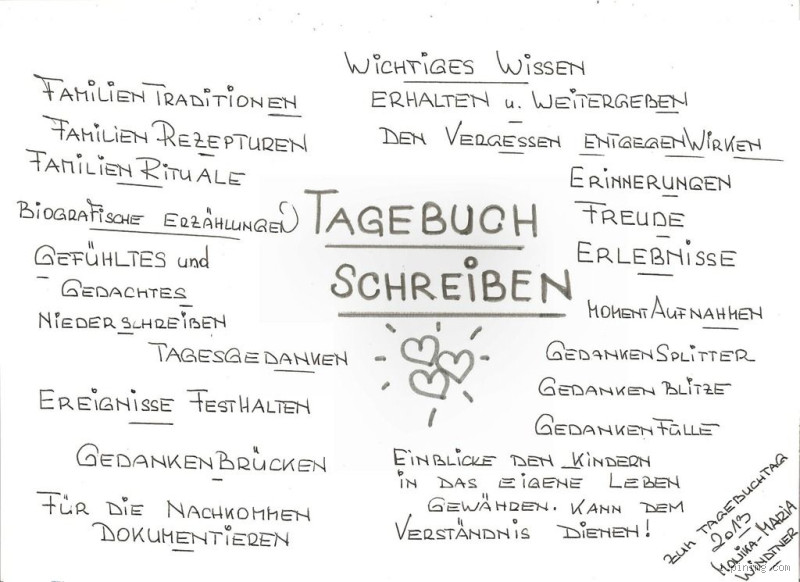 WICHTIGES WISSEN
ERHALTEN u. WEITERGEBEN
DEN VERGESSEN ENTGEGENWIRKEN
FAMILIENTRADITIONEN
FAMILIEN REZEPTUREN
FAMILIENRITUALE
BIOGRAFISCHE ERZÄHLUNGEN
GEFÜHLTES und
GEDACHTES
NIEDERSCHREIBEN
TAGESGEDANKEN
EREIGNISSE FESTHALTEN
GEDANKENBRÜCKEN
FÜR DIE NACHKOMMEN
DOKUMENTIEREN
TAGEBUCH
SCHREIBEN
ERINNERUNGEN
FREUDE
ERLEBNISSE
MOMENTAUFNAHMEN
GEDANKENSPLITTER
GEDANKENBLITZE
GEDANKENFÜLLE
EINBLICKE DEN KINDERN
IN DAS EIGENE LEBEN
GEWÄHREN. KANN DEM
VERSTÄNDNIS DIENEN!
ZUM TAGEBUCHTAG
2013
MONIKA-MARIA
WINDTNER